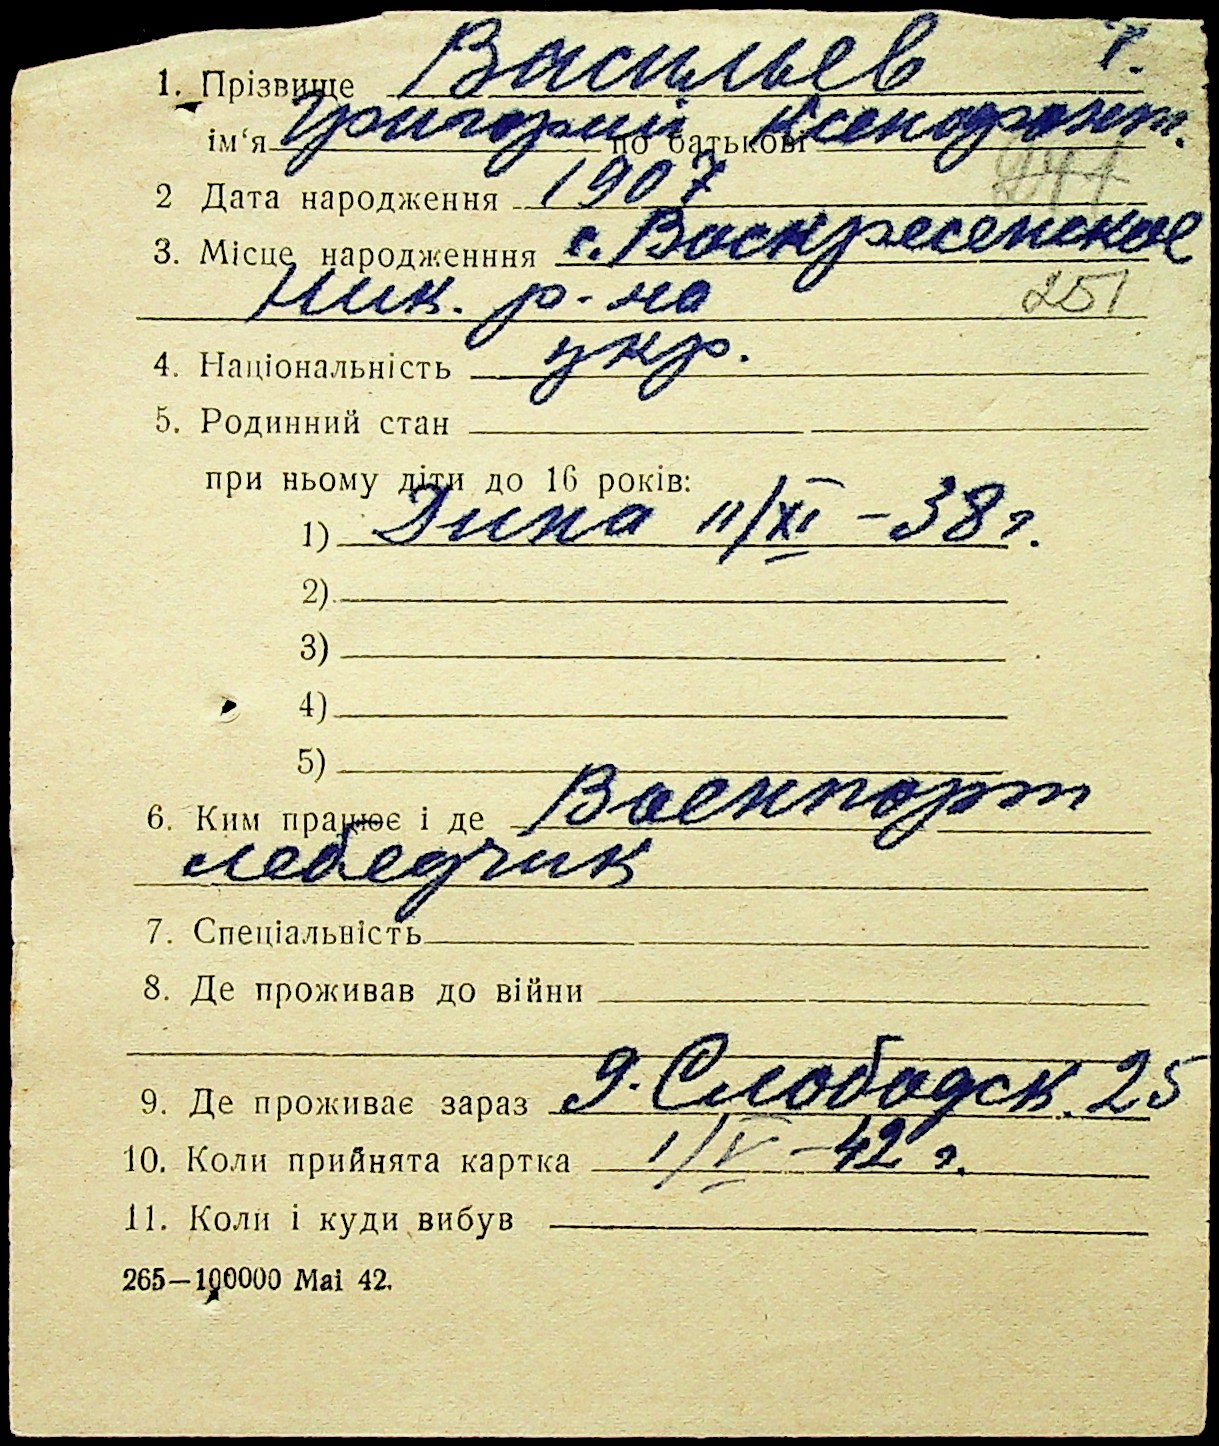 1. Прізвище Васильев Г.
ім‘я Григорий по батькові Ксенофонт.
2 Дата народження 1907 241
3. Місце народженння с. Воскресенское
Ник. р-на 251
4. Національність укр.
5. Родинний стан
при ньому діти до 16 років:
1) Дина 11/XI - 38 г.
2)
3)
4)
5)
6. Ким працює і де Военпорт
лебедчик
7. Спеціальність
8. Де проживав до війни
9. Де проживає зараз 9. Слободск. 25
10. Коли прийнята картка 1/V - 42 г.
11. Коли і куди вибув
265—100000 Mai 42.